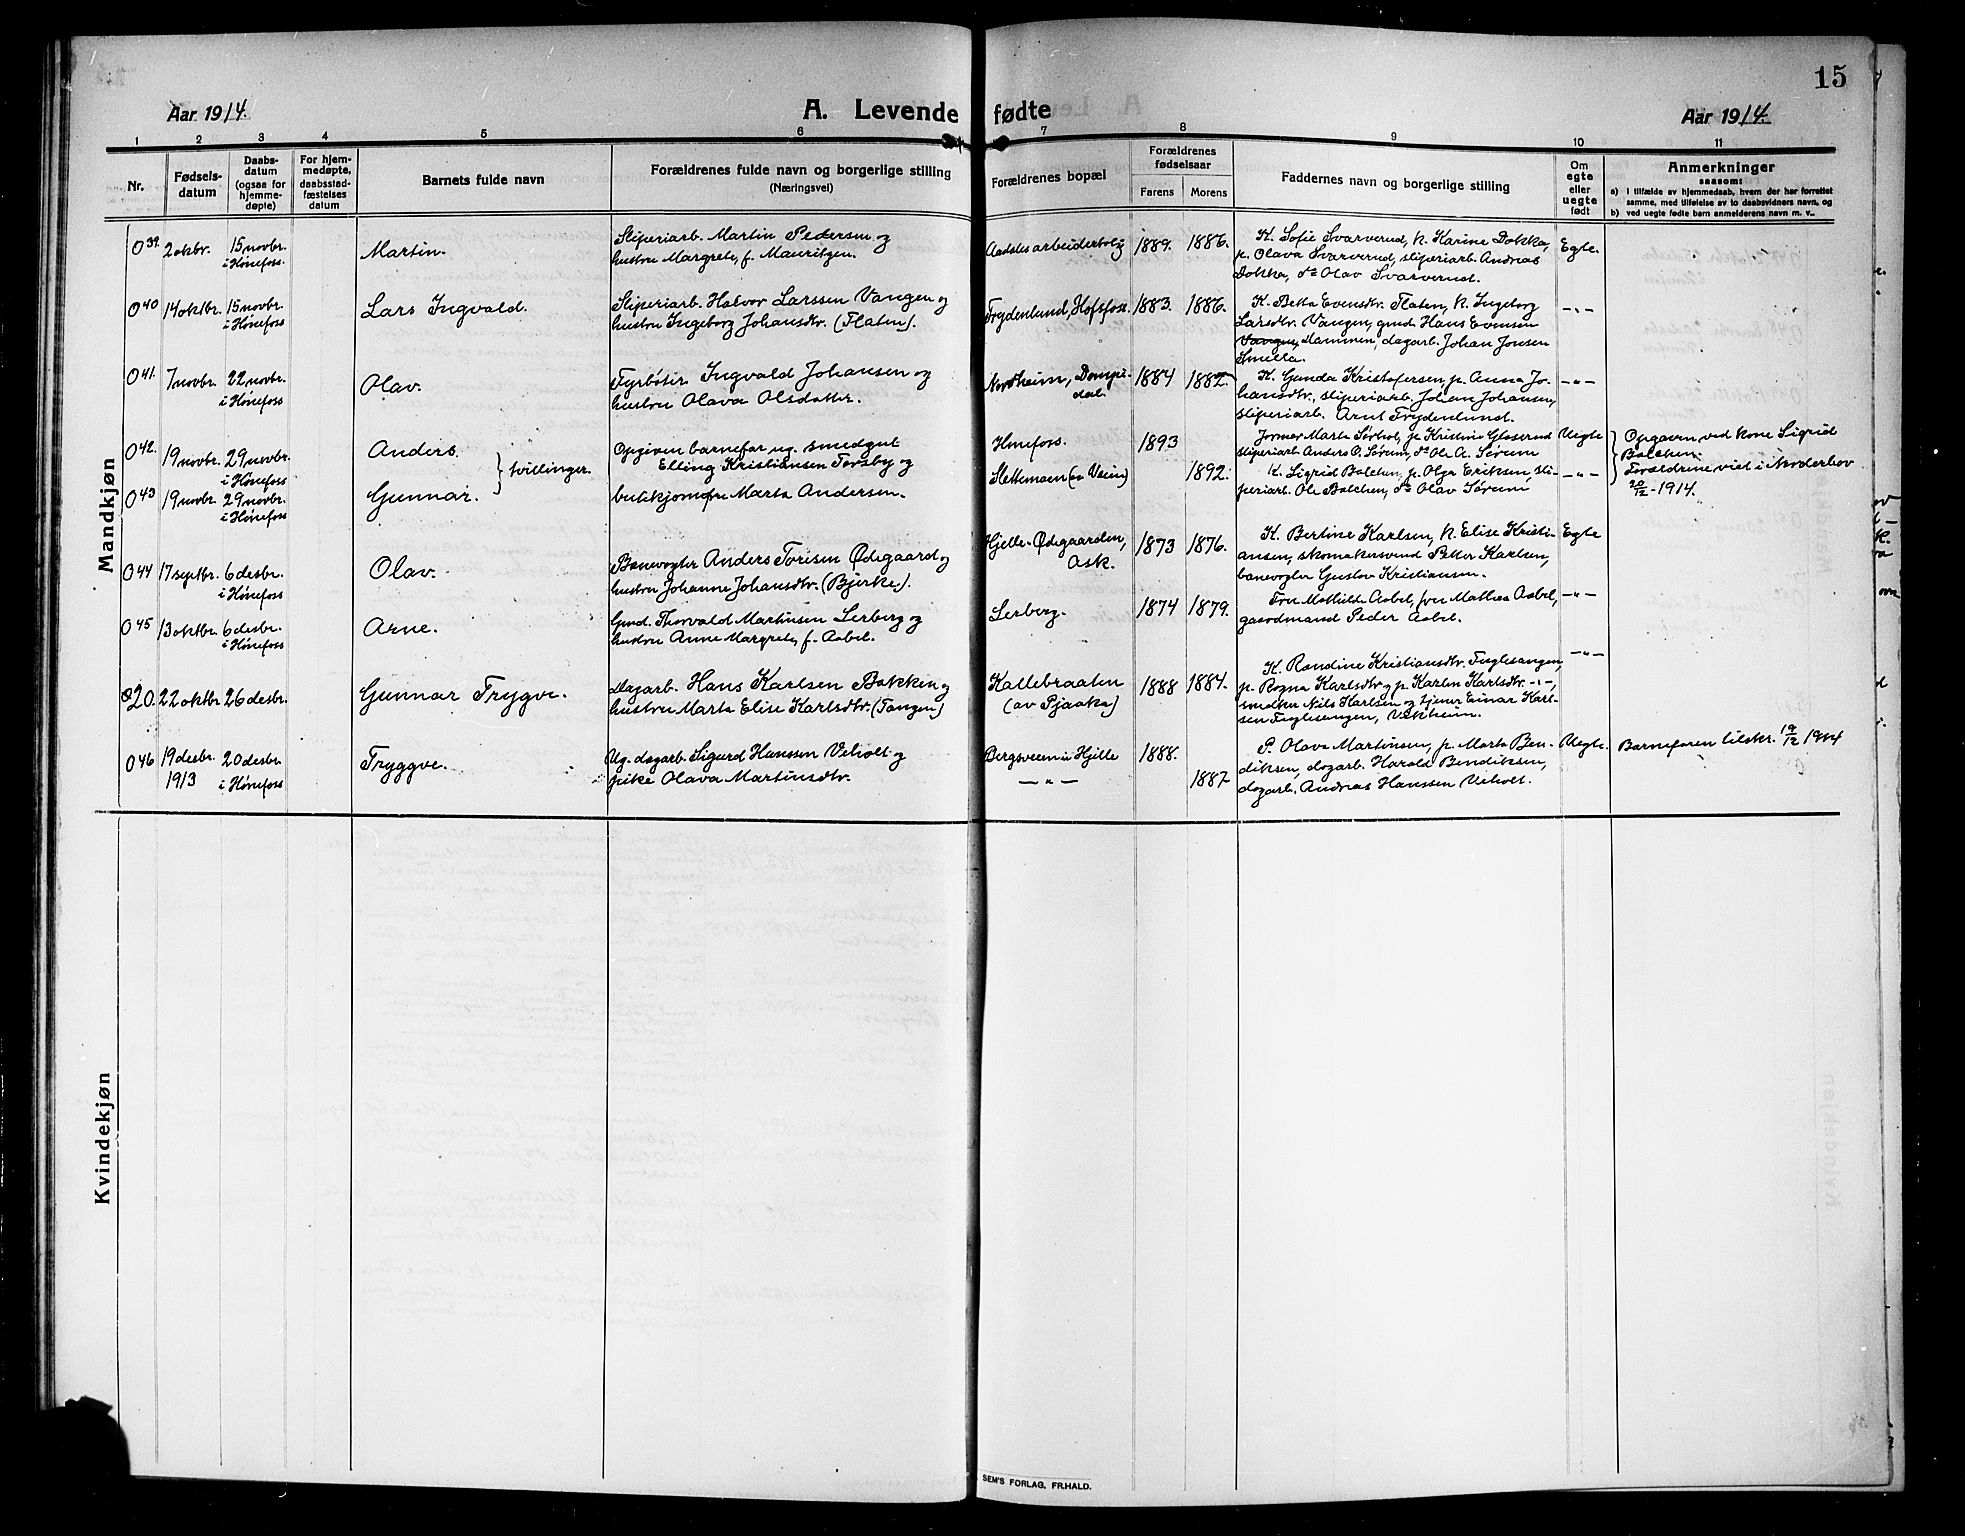 15
Aar 1914.
A. Levende fødte
Aar 1914.
1 2 3 4 5 6 7 8 9 10 11
Nr.
Fødsels-
datum
Daabs-
datum
(ogsaa for
hjemme-
døpte)
For hjem-
medøpte,
daabsstad-
fæstelses
datum
Barnets fulde navn
Forældrenes fulde navn og borgerlige stilling
(Næringsvei)
Forældrenes bopæl
Forældrenes
fødselsaar
Farens Morens
Faddernes navn og borgerlige stilling
Om
egte
eller
uegte
født
Anmerkninger
saasom:
a) i tilfælde av hjemmedaab, hvem der har forrettet
samme, med tilføielse av to daabsvidners navn, og
b) ved uegte fødte barn anmelderens navn m. v..
Mandkjøn
O 39. 2 okbr. 15 novbr.
i Hønefoss.
Martin.
Sliperiarb. Martin Pedersen og
hustru Margrete, f. Mauritzen.
Aadales arbeiderbolig
1889. 1886.
K. Sofie Svarverud, k. Karine Dokka,
p. Olava Svarverud, sliperiarb. Andreas
Dokka, do Olav Svarverud.
Egte.
O 40 14 oktbr. 15 novbr.
i Hønefoss
Lars Ingvald.
Sliperiarb. Halvor Larssen Vangen og
hustru Ingeborg Johansdtr. (Flaten).
Frydenlund, Hofsfoss.
1883. 1886.
K. Betta Evensdtr. Flaten, k. Ingeborg
Larsdtr. Vangen, gmd. Hans Evensen
Vangen, Dammen, dagarb. Johan Jonsen
Smilla.
— " —
O 41. 7 novbr. 22 novbr.
i Hønefoss
Olav.
Fyrbøter Ingvald Johansen og
hustru Olava Olsdatter.
Nordheim, Dompi-
dal.
1884 1882.
K. Gunda Kristofersen, p. Anna Jo-
hansdtr., sliperiarb. Johan Johansen,
sliperiarb. Arnt Frydenlund.
— " —
O 42. 19 novbr. 29 novbr.
i Hønefoss
Anders.
tvillinger.
Opgiven barnefar ug. smedgut
Elling Kristiansen Forsby og
Hønefoss. 1893
Jormor Marta Sørhol, p. Kristine Glaserud
sliperiarb. Anders O. Sørum, do Ole A. Sørum
Uegte
Opgaven ved kone Sigrid
Balchen.
Forældrene viet i Norderhov
20/12 - 1914.
O 43 19 novbr. 29 novbr.
i Hønefoss
Gunnar.
butikjomfru Marta Andersen.
Slettemoen (av Veien) 1892.
K. Sigrid Balchen, p. Olga Eriksen, sli-
periarb. Ole Balchen, do Olav Sørum
— " —
O 44 17 septbr. 6 desbr.
i Hønefoss
Olav.
Banevogter Anders Torisen Ødegaard og
hustru Johanne Johansdtr. (Bjerke).
Hjelle-Ødegaarden,
Ask.
1873 1876.
K. Bertine Karlsen, k. Elise Kristi-
ansen, skomakersvend Petter Karlsen,
banevogter Gustav Kristiansen.
Egte
O 45 13 oktbr. 6 desbr.
i Hønefoss
Arne.
Gmd. Thorvald Martinsen Lerberg og
hustru Anne Margrete, f. Aabel.
Lerberg.
1874 1879.
Fru Mathilde Aabel, frk. Mathea Aabel,
gaardmand Peder Aabel.
— " —
20. 22 oktbr 26 desbr.
Gunnar Trygve.
Dagarb. Hans Karlsen Bakken og
hustru Marta Elise Karlsdtr. (Tangen)
Kallebraaten
(av Pjaaka)
1888 1884.
K. Randine Kristiansdtr. Fuglesangen,
p. Ragna Karlsdtr. og p. Karlen Karlsdtr. - " -
smeker Nils Karlsen og tjener Einar Karl-
sen Fuglesangen, Vekheim.
— " —
O 46 19 desbr. 20 desbr.
1913 i Hønefoss
Tryggve.
Ug. dagarb. Sigurd Hanssen Veholt og
pike Olava Martinsdtr.
Bergsveen u. Hjelle
— " —
1888.
1887
P. Olava Martinsen, p. Marta Ben-
diksen, dagarb. Harald Bendiksen,
dagarb. Andreas Hanssen Veholt.
Uegte.
Barnefaren tilskr. 19/12 1914
Kvindekjøn
SEM'S FORLAG, FR.HALD.